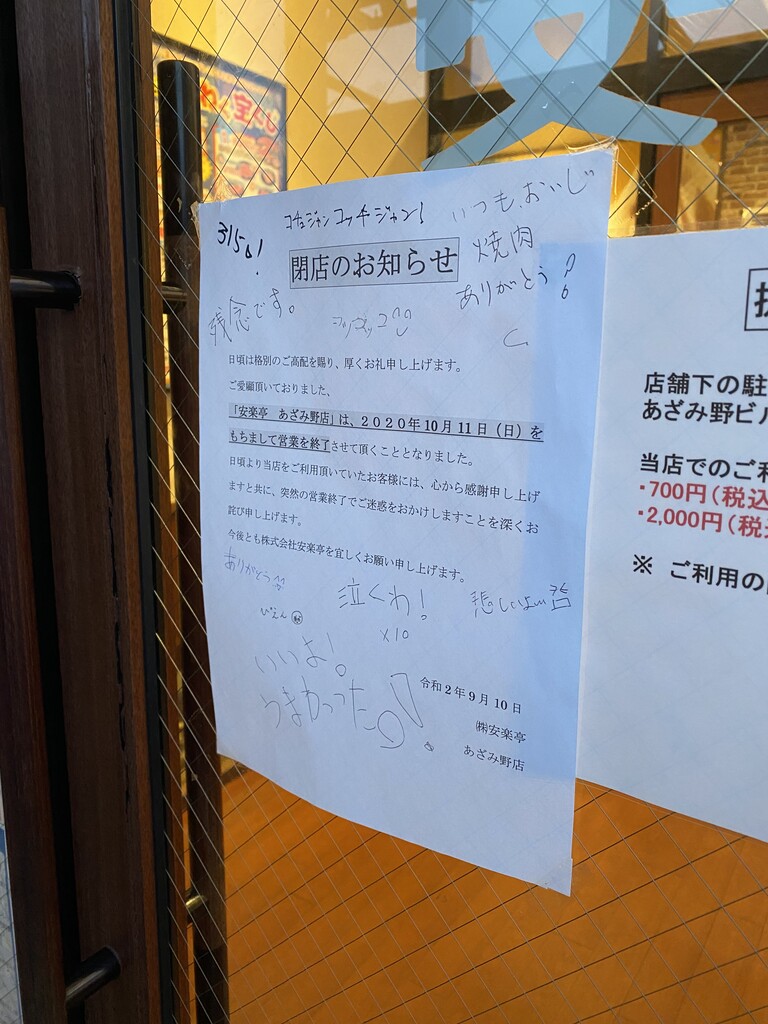 コチュジャン コッチジャン!
いつも、おいし
焼肉
ありがとう
閉店のお知らせ
残念です。
日頃は格別のご高配を賜り、厚くお礼申し上げます。
ご愛顧頂いておりました、
「安楽亭　あざみ野店」は、2020年10月11日(日)を
もちまして営業を終了させて頂くこととなりました。
日頃より当店をご利用頂いていたお客様には、心から感謝申し上げ
ますと共に、突然の営業終了でご迷惑をおかけしますことを深くお
詫び申し上げます。
今後とも株式会社安楽亭を宜しくお願い申し上げます。
ありがとう
泣くわ!
×10
ぴえん
うまかった
令和2年9月10日
㈱安楽亭
あざみ野店
店舗下の駐
あざみ野ビル
当店でのご利
・700円(税込
・2,000円(税
※ ご利用の